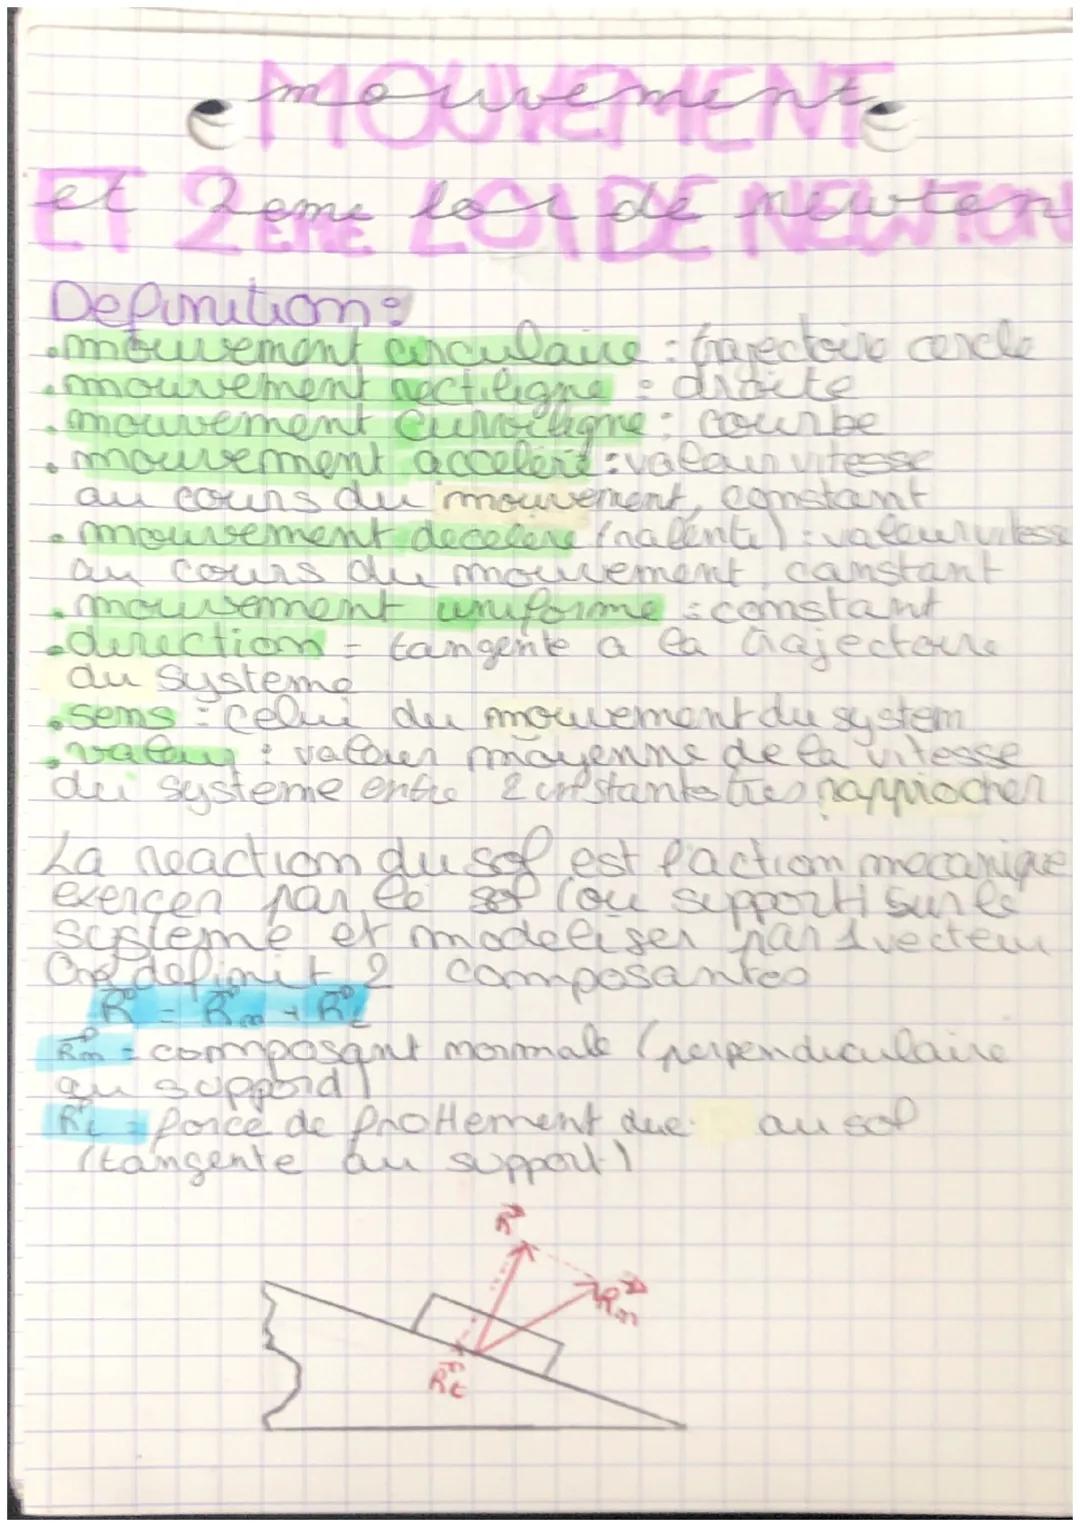 mouvement
MOUVEMENT
et 2eme loi de newton
ET 2EME LOI DE NEWTON
Definition:
• mouvement circulaire : trajectoire cercle
• mouvement rectiligne : droite
• mouvement curviligne : courbe
• mouvement accelere : valeur vitesse
au cours du mouvement, constant
• mouvement decelere (ralenti) : valeur vitesse
au cours du mouvement, constant
• mouvement uniforme : constant
• direction = tangente a la trajectoire
du systeme
• sens : celui du mouvement du system
• valeur : valeur moyenne de la vitesse
du systeme entre 2 instants tres rapprocher
La reaction du sol est l'action mecanique
exercer par le sol (ou support) sur le
systeme et modeliser par 1 vecteur
On definit 2 composantes
R = Rn + Rt
Rn = composant normale (perpendiculaire
au suppord)
Rt = force de frottement due au sol
(tangente au support)
R
Rn
Rt